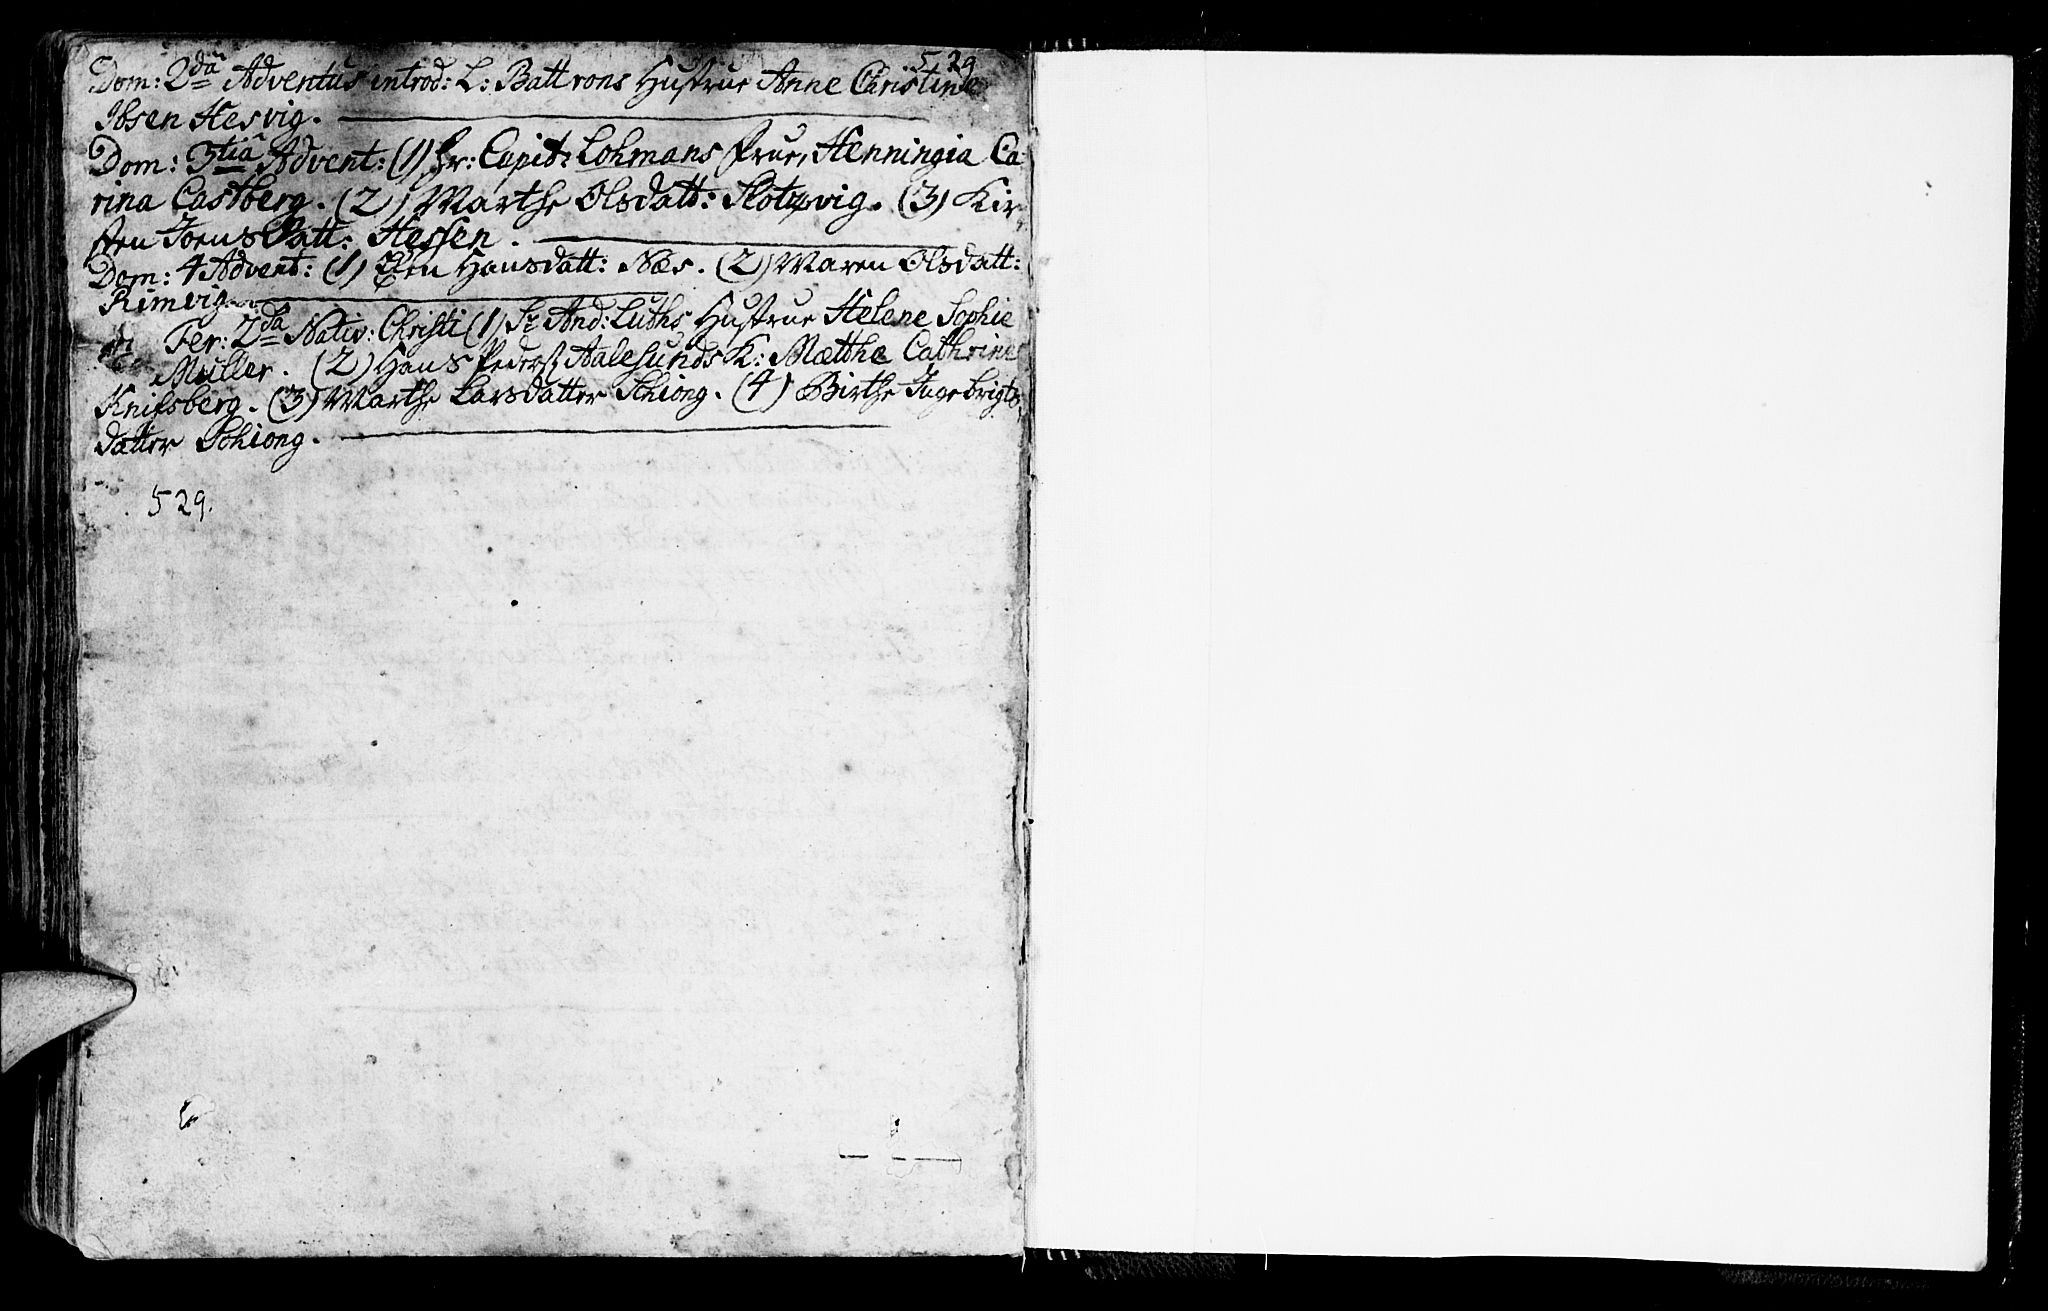 529
Dom: 2da Adventus introd: L: Battrons Hustrue Anne Christine
Ibsen Hesvig.
Dom: 3tia Advent: (1) Hr: Capit: Lohmans Frue, Henningia Ca-
rina Castberg. (2) Marthe Olsdatt: Slotzvig. (3) Kir-
sten Joensdatt: Hessen.
Dom: 4 Advent: (1) Elen Hansdatt: Næs. (2) Maren Olsdatt:
Rimvig.
Fer: 2da Nativ: Christi (1) Sr And: Luths Hustrue Helene Sophie
Müller. (2) Hans Peders: Aalesunds K: Mætthe Cathrine
Knifsberg. (3) Marthe Larsdatter Schiong. (4) Birthe Ingebrigts-
datter Schiong.
529.